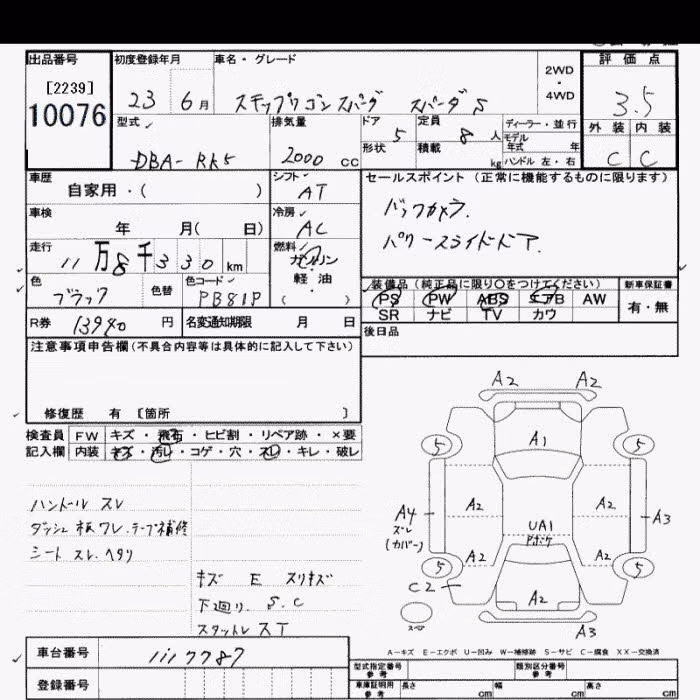 出品番号 初度登録年月 車名・グレード 評価点
[2239] 2WD・4WD
10076 23 6月 ステップワゴンスパーダ スパーダS 3.5
型式 排気量 ドア 定員 ディーラー・並行 外装 内装
DBA-RK5 2000 cc 5 8人 モデル年式 年 C C
形状 積載 kg ハンドル 左・右
車歴 シフト セールスポイント (正常に機能するものに限ります)
自家用・( ) AT バックカメラ.
車検 冷房 パワースライドドア.
年 月( 日) AC
走行 燃料
11万8千330km ガソリン・軽油
( )
色 色替 色コード 装備品(純正品に限り○をつけてください) 新車保証書
ブラック PB81P PS PW ABS エアB AW 有・無
R券 13980円 名変通知期限 月 日 SR ナビ TV カワ
後日品
注意事項申告欄(不具合内容等は具体的に記入して下さい)
修復歴 有 [箇所 ]
検査員記入欄 FW キズ・飛石・ヒビ割・リペア跡・×要
内装 キズ・汚レ・コゲ・穴・スレ・キレ・破レ
ハンドル スレ
ダッシュ板ワレ.テープ補修
シート スレ.ヘタリ
キズ E スリキズ
下廻り S.C
スタットレスT
A2 A2
A1
5 5
A2 A2
A4 A3
スレ
(カバー)
UA1
A2 A2
5 5
C2 A2
スペア
A3
A－キズ E－エクボ U－凹み W－補修跡 S－サビ C－腐食 XX－交換済
車台番号 1117787 型式指定番号 参考 類別区分番号 参考
登録番号 車庫証明用 参考 長さ cm 幅 cm 高さ cm